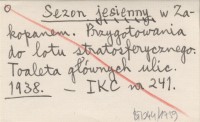 Sezon jesienny w Za-
kopanem. Przygotowania
do lotu stratosferycznego.
Toaleta głównych ulic.
1938. — IKC na 241.